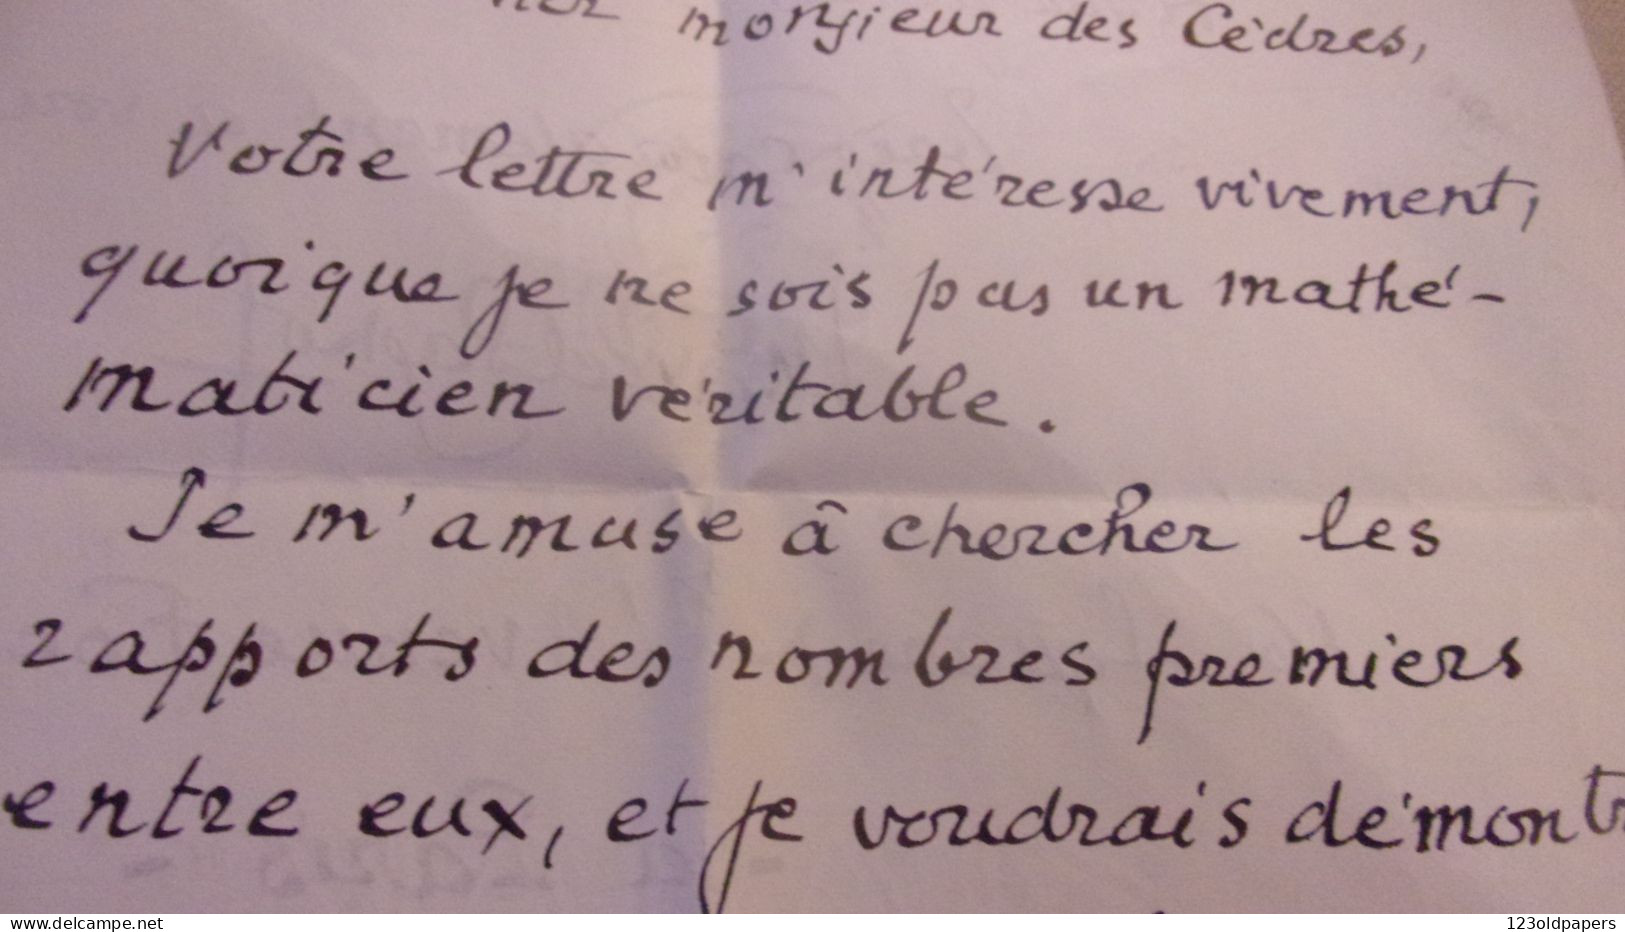 monsieur des Cèdres,
Votre lettre m'intéresse vivement,
quoique je ne sois pas un mathé-
maticien véritable.
Je m'amuse à chercher les
rapports des nombres premiers
entre eux, et je voudrais démontr
delcampe.net
123oldpapers